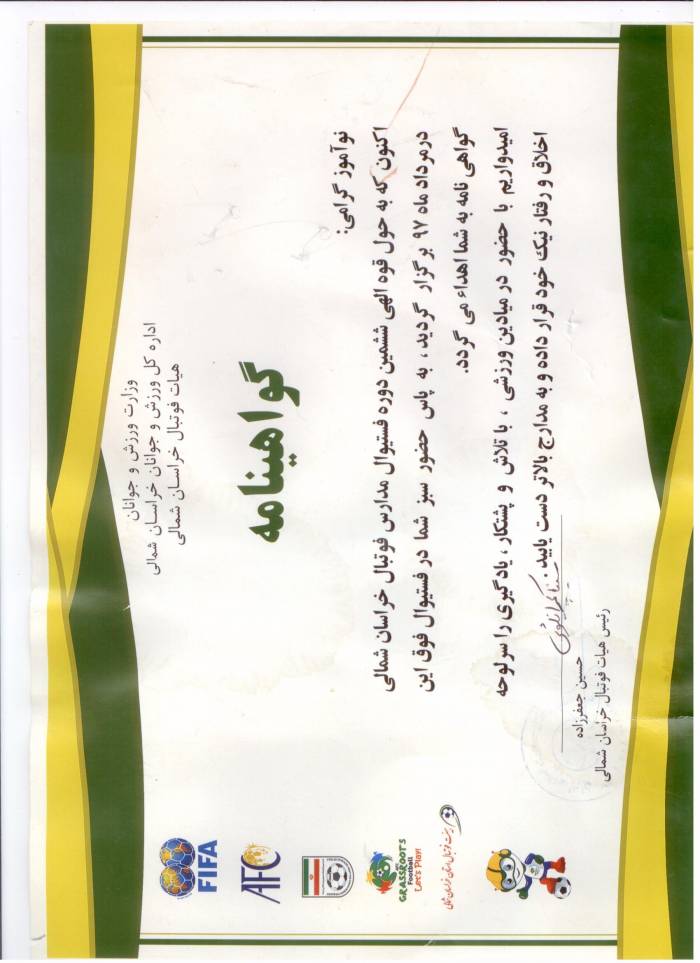 وزارت ورزش و جوانان
اداره کل ورزش و جوانان خراسان شمالی
هیات فوتبال خراسان شمالی
گواهینامه
نوآموز گرامی:
اکنون که به حول قوه الهی ششمین دوره فستیوال مدارس فوتبال خراسان شمالی
درمرداد ماه ۹۷ برگزار گردید ، به پاس حضور سبز شما در فستیوال فوق این
گواهی نامه به شما اهداء می گردد.
امیدواریم با حضور در میادین ورزشی ، با تلاش و پشتکار ، یادگیری را سرلوحه
اخلاق و رفتار نیک خود قرار داده و به مدارج بالاتر دست یابید.
حسین جعفرزاده
رئیس هیات فوتبال خراسان شمالی
FIFA
AFC
AFC
GRASSROOTS
Football
Let's Play!
هیئت فوتبال استان خراسان شمالی